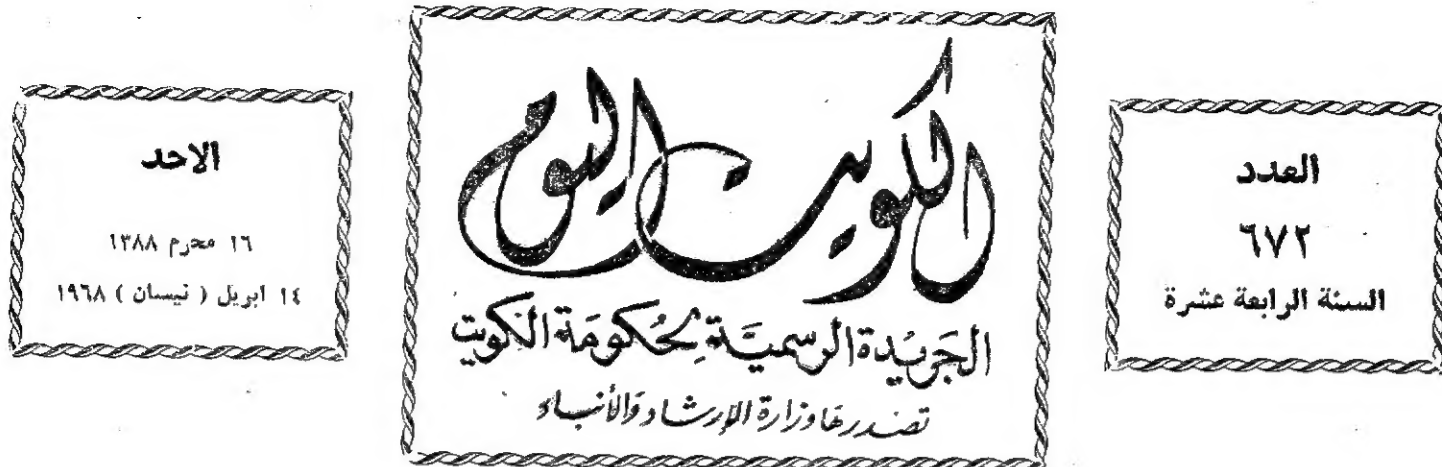 العدد
٦٧٢
السنة الرابعة عشرة
الكويت اليوم
الجريدة الرسمية لحكومة الكويت
تصدرها وزارة الإرشاد والأنباء
الاحد
١٦ محرم ١٣٨٨
١٤ ابريل ( نيسان ) ١٩٦٨